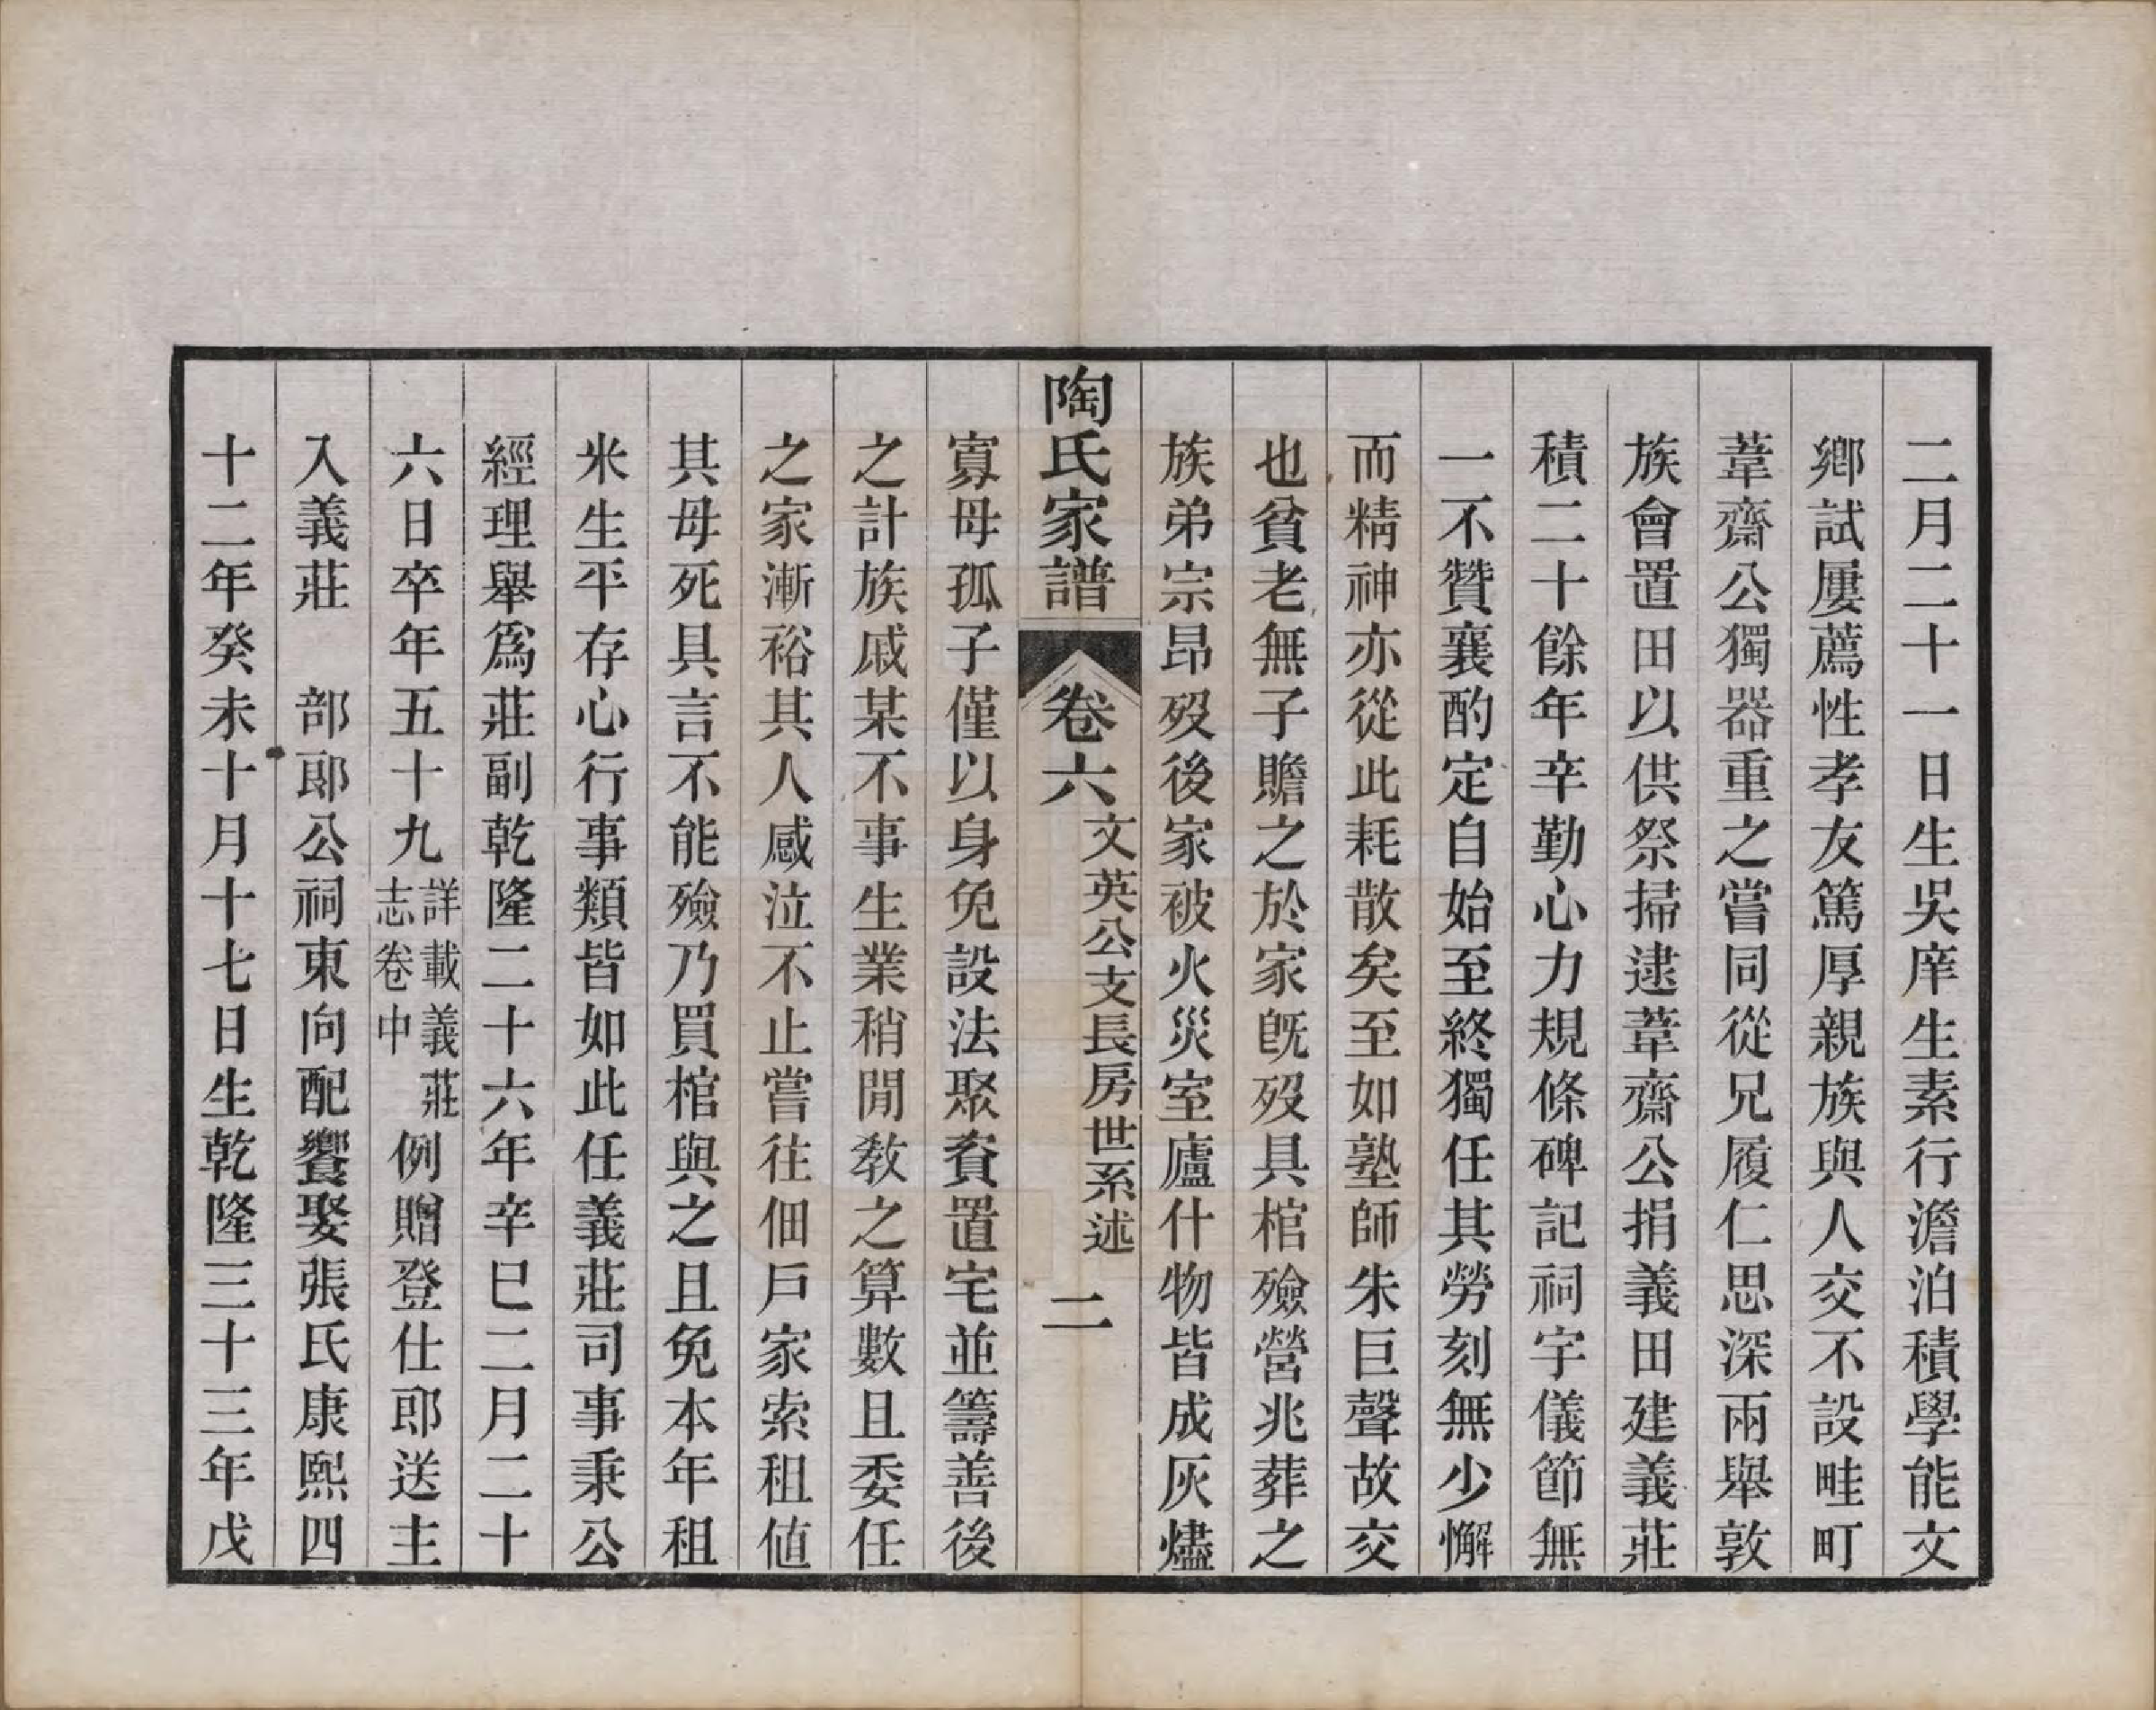 二月二十一日生吳庠生素行澹泊積學能文
鄉試屢薦性孝友篤厚親族與人交不設畦町
葦齋公獨器重之嘗同從兄履仁思深兩舉敦
族會置田以供祭掃逮葦齋公捐義田建義莊
積二十餘年辛勤心力規條碑記祠宇儀節無
一不贊襄酌定自始至終獨任其勞刻無少懈
而精神亦從此耗散矣至如塾師朱巨聲故交
也貧老無子贍之於家旣歿具棺殮營兆葬之
族弟宗昂歿後家被火災室廬什物皆成灰燼
陶氏家譜 卷六 文英公支長房世系述 二
寡母孤子僅以身免設法聚貲置宅並籌善後
之計族戚某不事生業稍閒教之算數且委任
之家漸裕其人感泣不止嘗往佃戶家索租値
其母死具言不能殮乃買棺與之且免本年租
米生平存心行事類皆如此任義莊司事秉公
經理舉爲莊副乾隆二十六年辛巳二月二十
六日卒年五十九詳載義莊志卷中例贈登仕郎送主
入義莊 部郎公祠東向配饗娶張氏康熙四
十二年癸未十月十七日生乾隆三十三年戊